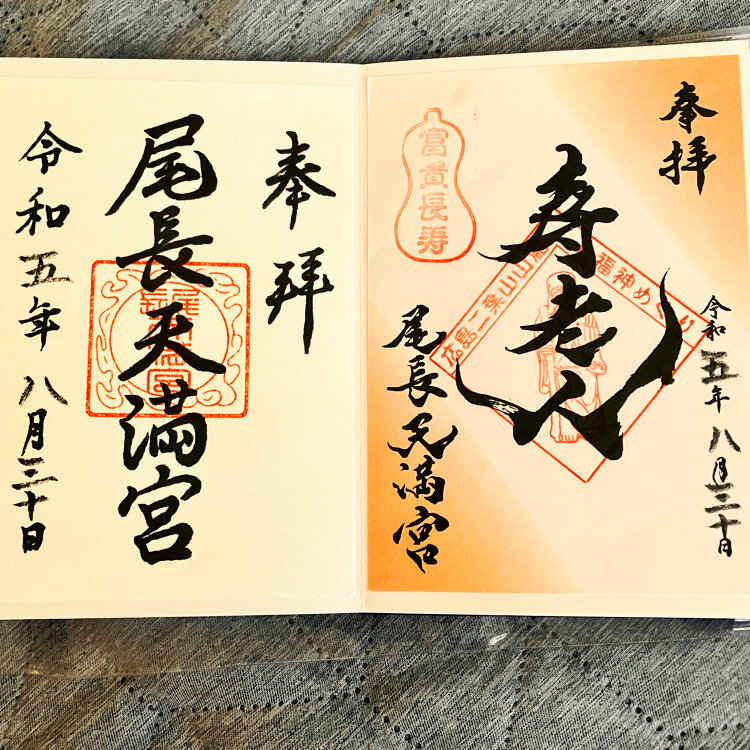 奉拝
令和五年八月三十日
寿老人
広島二葉山山麓
福神めぐり
富貴長寿
尾長天満宮
奉拝
尾長天満宮
令和五年八月三十日